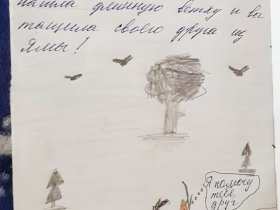 нашла длинную ветку и вы
тащила своего друга из
ямы!
Я помогу
тебе,
друг